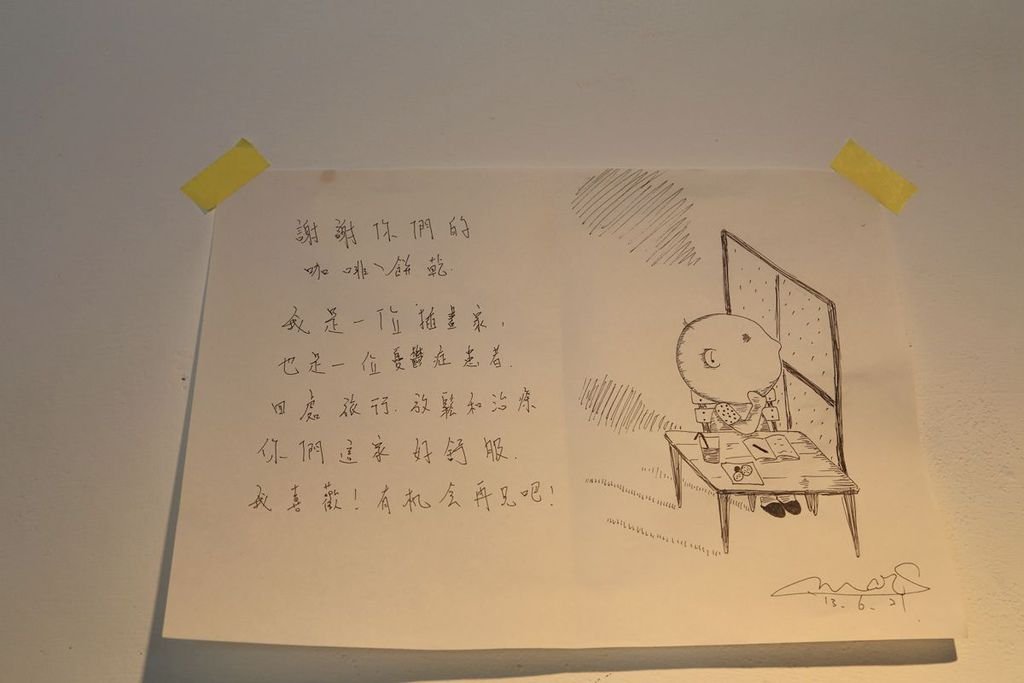 謝謝你們的
咖啡、餅乾.
我是一位插畫家,
也是一位憂鬱症患者.
四處旅行.放鬆和治療
你們這家好舒服.
我喜歡!有机会再見吧!
mars
13.6.21